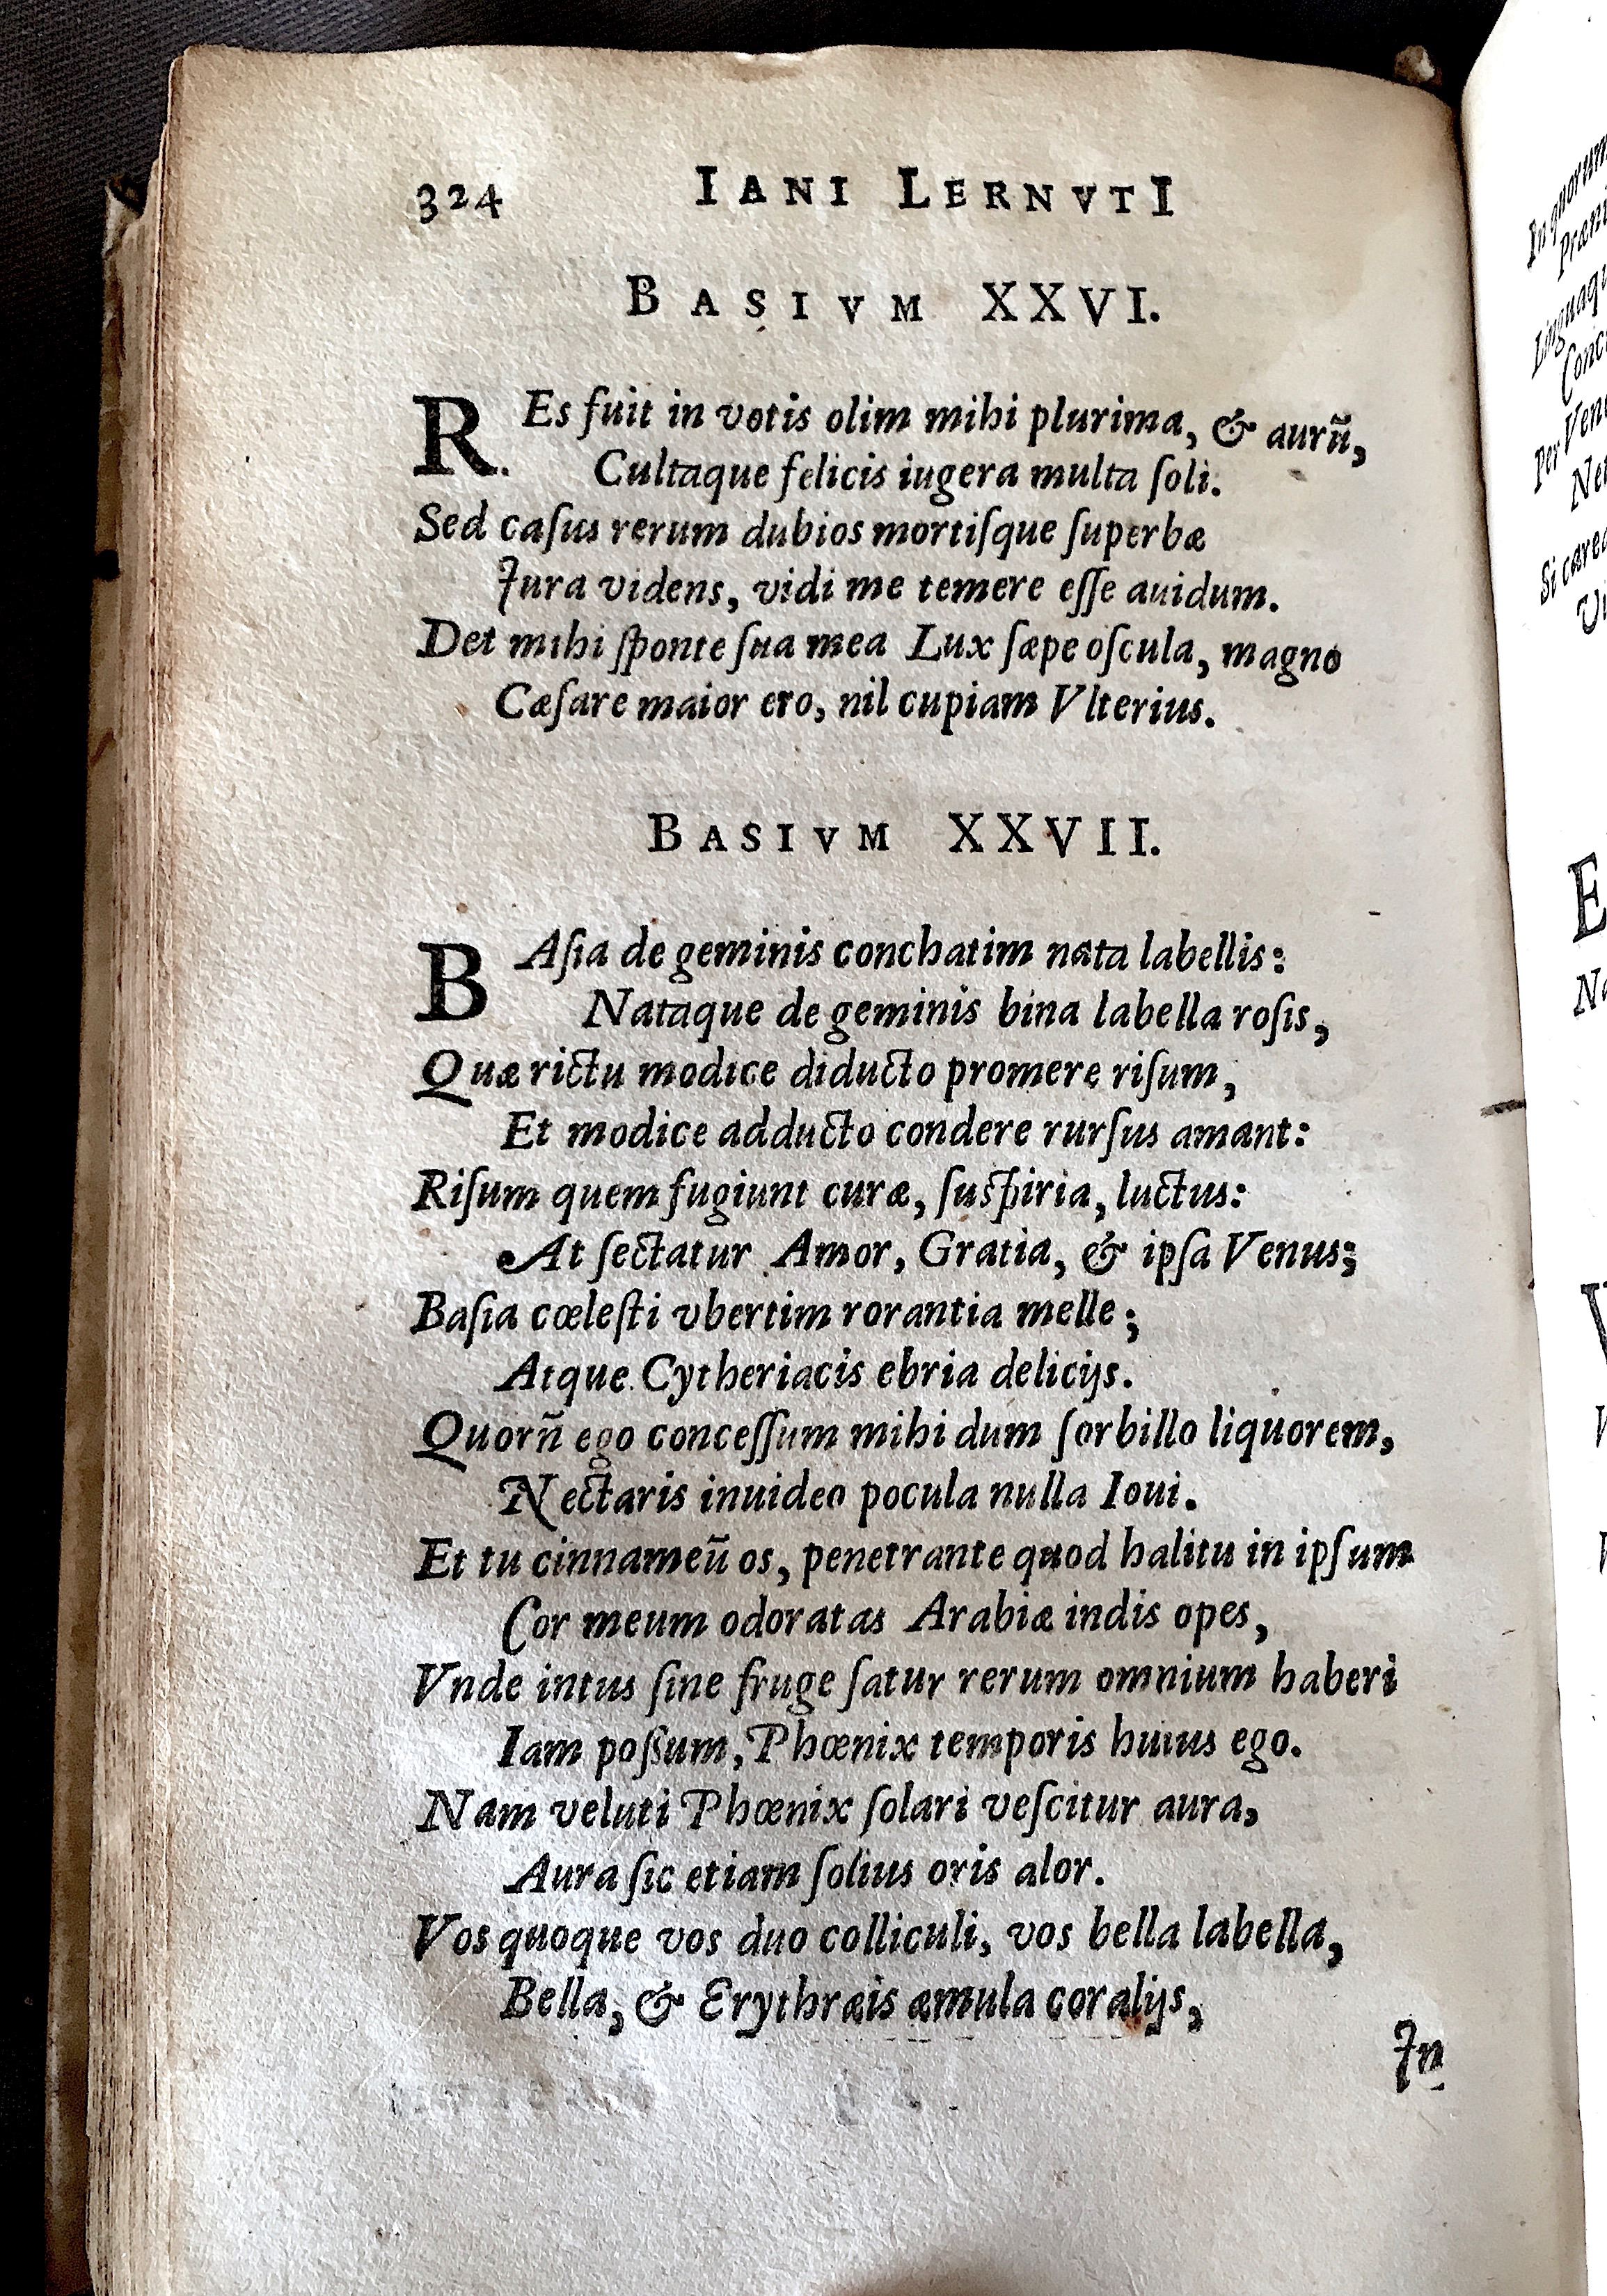 324 IANI LERNVTI
BASIVM XXVI.
REs fuit in votis olim mihi plurima, & aurũ,
Cultaque felicis iugera multa ſoli.
Sed caſus rerum dubios mortiſque ſuperbæ
Jura videns, vidi me temere eſſe auidum.
Det mihi ſponte ſua mea Lux ſæpe oſcula, magno
Cæſare maior ero, nil cupiam Vlterius.
BASIVM XXVII.
BAſia de geminis conchatim nata labellis:
Nataque de geminis bina labella roſis,
Quæ rictu modice diducto promere riſum,
Et modice adducto condere rurſus amant:
Riſum quem fugiunt curæ, ſuſpiria, luctus:
At ſectatur Amor, Gratia, & ipſa Venus;
Baſia cœleſti vbertim rorantia melle;
Atque Cytheriacis ebria delicijs.
Quorũ ego conceſſum mihi dum ſorbillo liquorem,
Nectaris inuideo pocula nulla Ioui.
Et tu cinnameũ os, penetrante quod halitu in ipſum
Cor meum odoratas Arabiæ indis opes,
Vnde intus ſine fruge ſatur rerum omnium haberi
Iam poſſum, Phœnix temporis huius ego.
Nam veluti Phœnix ſolari veſcitur aura,
Aura ſic etiam ſolius oris alor.
Vos quoque vos duo colliculi, vos bella labella,
Bella, & Erythræis æmula coralijs,
Jn
In quorum
Per Ven
Si care
E